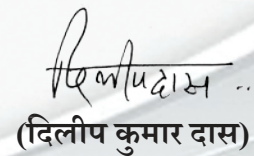 दिलीप दास
(दिलीप कुमार दास)